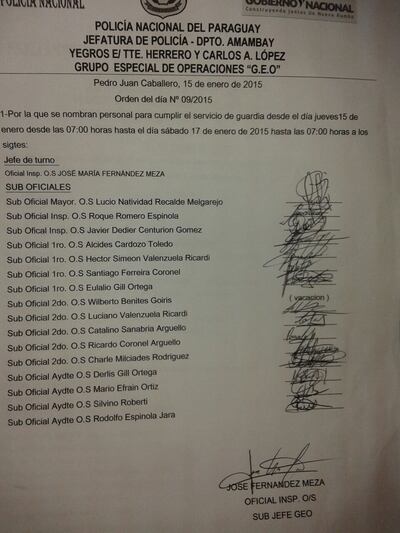 POLICIA NACIONAL
GOBIERNO NACIONAL
Construyendo Juntos Un Nuevo Rumbo
POLICÍA NACIONAL DEL PARAGUAY
JEFATURA DE POLICÍA - DPTO. AMAMBAY
YEGROS E/ TTE. HERRERO Y CARLOS A. LÓPEZ
GRUPO ESPECIAL DE OPERACIONES "G.E.O"
Pedro Juan Caballero, 15 de enero de 2015
Orden del día Nº 09/2015
1-Por la que se nombran personal para cumplir el servicio de guardia desde el día jueves15 de
enero desde las 07:00 horas hasta el día sábado 17 de enero de 2015 hasta las 07:00 horas a los
sigtes:
Jefe de turno
Oficial Insp. O.S JOSÉ MARÍA FERNÁNDEZ MEZA
SUB OFICIALES
Sub Oficial Mayor. O.S Lucio Natividad Recalde Melgarejo
Sub Oficial Insp. O.S Roque Romero Espinola
Sub Oficial Insp. O.S Javier Dedier Centurion Gomez
Sub Oficial 1ro. O.S Alcides Cardozo Toledo
Sub Oficial 1ro. O.S Hector Simeon Valenzuela Ricardi
Sub Oficial 1ro. O.S Santiago Ferreira Coronel
Sub Oficial 1ro. O.S Eulalio Gill Ortega
( vacacion )
Sub Oficial 2do. O.S Wilberto Benites Goiris
Sub Oficial 2do. O.S Luciano Valenzuela Ricardi
Sub Oficial 2do. O.S Catalino Sanabria Arguello
Sub Oficial 2do. O.S Ricardo Coronel Arguello
Sub Oficial 2do. O.S Charle Milciades Rodriguez
Sub Oficial Aydte O.S Derlis Gill Ortega
Sub Oficial Aydte O.S Mario Efrain Ortiz
Sub Oficial Aydte O.S Silvino Roberti
Sub Oficial Aydte O.S Rodolfo Espinola Jara
JOSE FERNANDEZ MEZA
OFICIAL INSP. O/S
SUB JEFE GEO